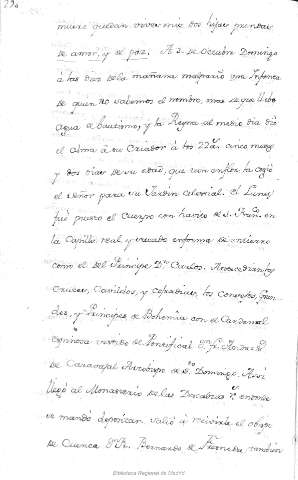 muere quedan vivas mis dos hijas prendas
de amor, y de paz. A 3. de octubre Domingo
á las dies de la mañana malparió una Infanta
de quien no sabemos el nombre, mas de que llebo
agua de bautismo, y la Reyna al medio dia dio
el alma á su Criador á los 22 a.s cinco meses
y dos dias de su edad, que una en flor la cojió
el señor para su Jardin celestial. El Lunes
fué puesto el cuerpo con havito de S. Fran.co en
la Capilla real y en forma de entierro
como el del Principe D.n Carlos.
Cruces, Cavildos, y cofradias, los Consejos, Gran-
des, y Principes de Bohemia con el Cardenal
espinosa vestido de Pontifical
de Caravajal Arzobispo de S.to Domingo. Assi
llegó al Monasterio de las Descalzas R.s en donde
se mandó depositar. salió á recivirla el obispo
de Cuenca D.n Fr. Bernardo de Fresneda, tambien
Biblioteca Regional de Madrid